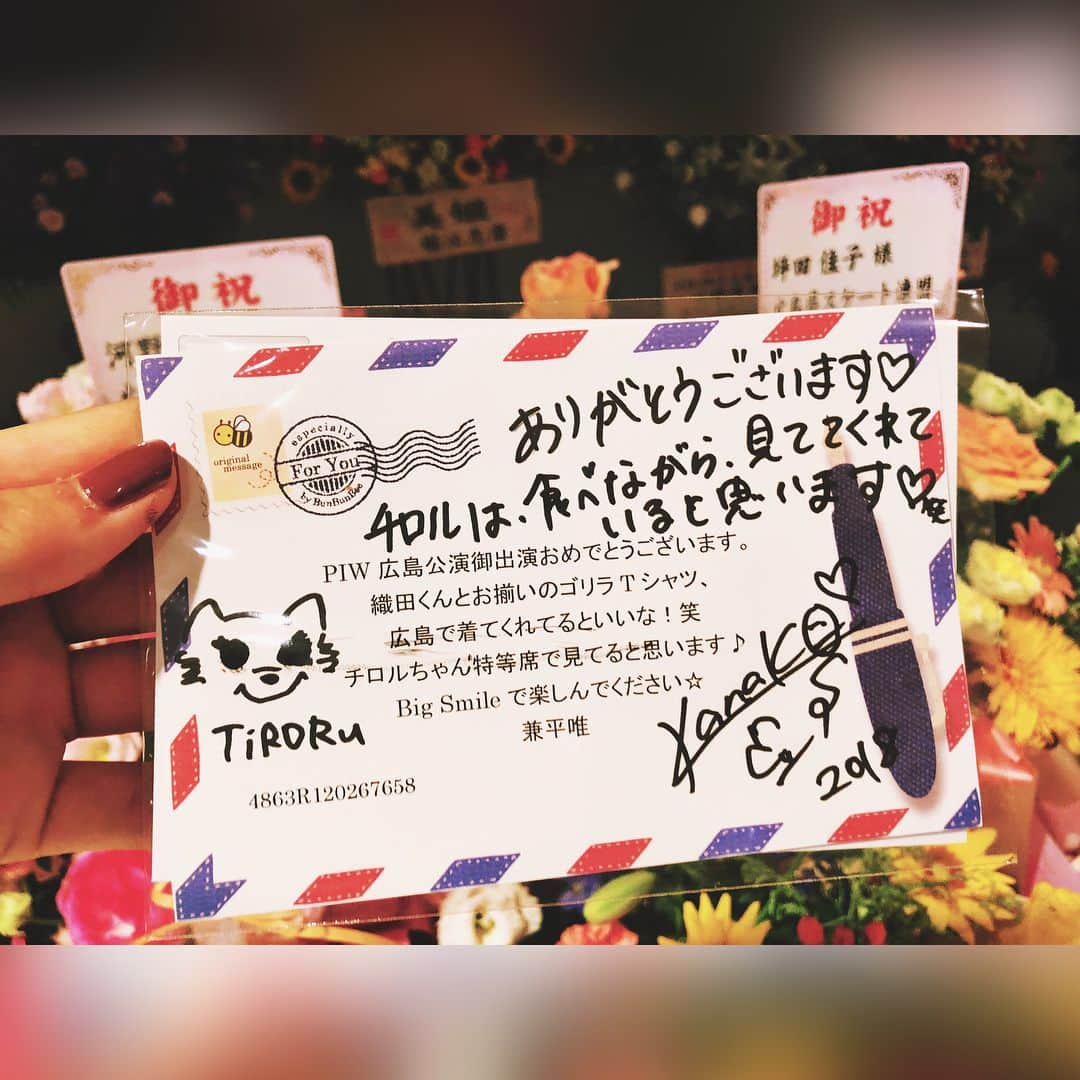 御祝
御祝
様
original
message
especially
For You
by BunBunBee
ありがとうございます♡
チロルは、食べながら、見ててくれて
いると思います♡笑
PIW 広島公演御出演おめでとうございます。
織田くんとお揃いのゴリラTシャツ、
広島で着てくれてるといいな！笑
チロルちゃん特等席で見てると思います♪
Big Smile で楽しんでください☆
兼平唯
TiRORu
Kanako
2018
4863R120267658